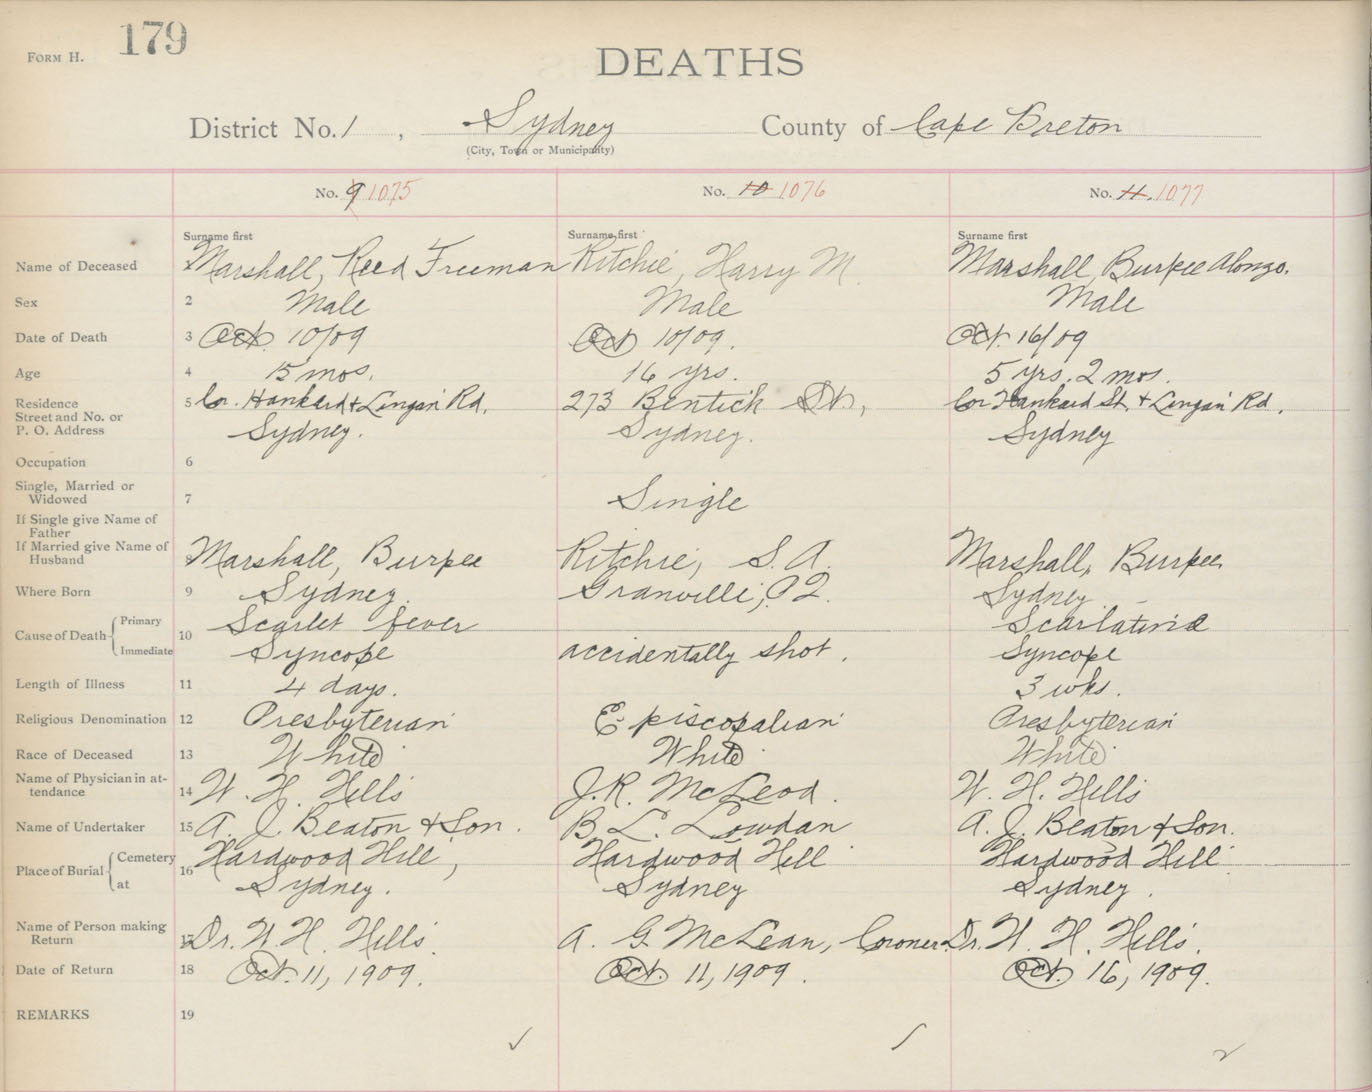 FORM H. 179
DEATHS
District No. 1, Sydney County of Cape Breton
(City, Town or Municipality)
No. 9 1075 No. 10 1076 No. 11. 1077
Surname first Surname first Surname first
Name of Deceased Marshall, Reed Freeman Ritchie, Harry M. Marshall, Burpee Alonzo.
Sex 2 Male Male Male
Date of Death 3 Oct. 10/09 Oct 10/09. Oct. 16/09
Age 4 15 mos. 16 yrs. 5 yrs. 2 mos.
Residence 5 Cor. Hankard & Lingan Rd. 273 Bentick St., Cor Hankard St. & Lingan Rd.
Street and No. or
P. O. Address Sydney. Sydney. Sydney
Occupation 6
Single, Married or
Widowed 7 Single
If Single give Name of
Father
If Married give Name of
Husband 8 Marshall, Burpee Ritchie, S. A. Marshall, Burpee
Where Born 9 Sydney. Granville, P Q. Sydney
Cause of Death Primary 10 Scarlet fever Scarlatina
Immediate Syncope accidentally shot. Syncope
Length of Illness 11 4 days. 3 wks.
Religious Denomination 12 Presbyterian Episcopalian Presbyterian
Race of Deceased 13 White White White
Name of Physician in at-
tendance 14 W. H. Hills J. R. McLeod. W. H. Hills
Name of Undertaker 15 A. J. Beaton & Son. B. L. Lowdan A. J. Beaton & Son.
Place of Burial Cemetery 16 Hardwood Hill, Hardwood Hill Hardwood Hill
at Sydney. Sydney Sydney.
Name of Person making
Return 17 Dr. W. H. Hills. A. G. McLean, Coroner. Dr. W. H. Hills.
Date of Return 18 Oct. 11, 1909. Oct. 11, 1909. Oct. 16, 1909.
REMARKS 19